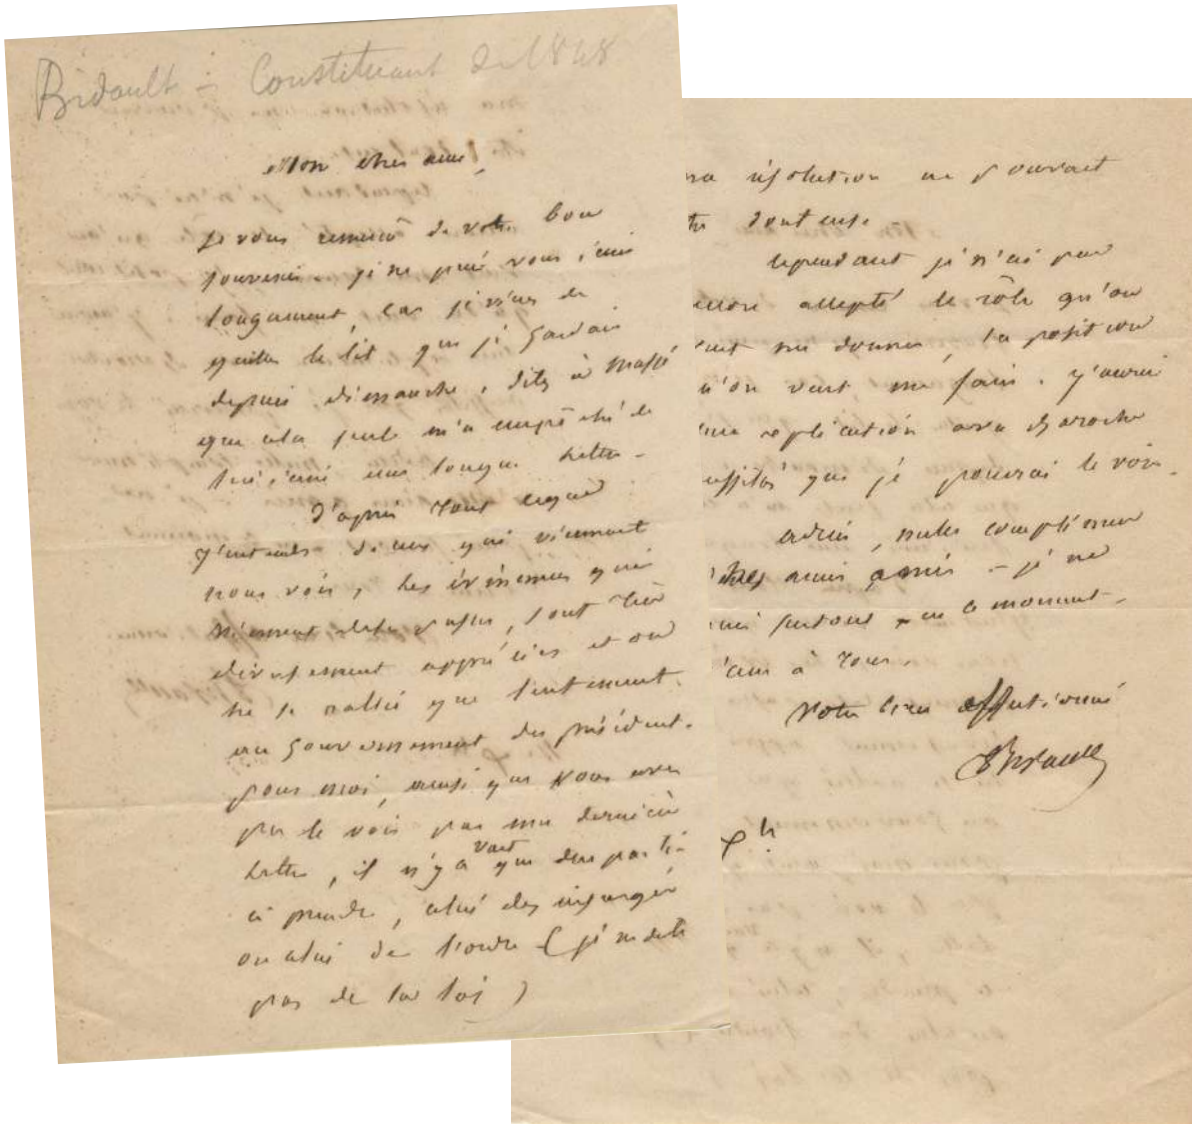 Bidault - Constituant de 1848
Mon cher ami,
Je vous remercie de votre bon
souvenir. je ne puis vous écrire
longuement, car je viens de
quitter le lit que je gardais
depuis dimanche. dites à Massé
que cela seul m'a empêché de
lui écrire une longue lettre.
D'après tout ce que
j'entends de ceux qui viennent
nous voir, les événemens qui
viennent de se passer, sont très
diversement appréciés et on
ne se rallie que lentement
au gouvernement du président.
pour moi, ainsi que vous avez
pu le voir par ma dernière
lettre, il n'y avait que deux partis
à prendre, celui des insurgés
ou celui de l'ordre (je ne dis
pas de la loi)
ma résolution ne pouvait
être douteuse.
cependant je n'ai pas
encore accepté le rôle qu'on
veut me donner, la position
qu'on veut me faire. j'aurai
une explication avec Baroche
aussitôt que je pourrai le voir.
adieu, mille complimens
amis - je ne
surtout en ce moment.
à vous.
Votre bien affectionné
Bidault